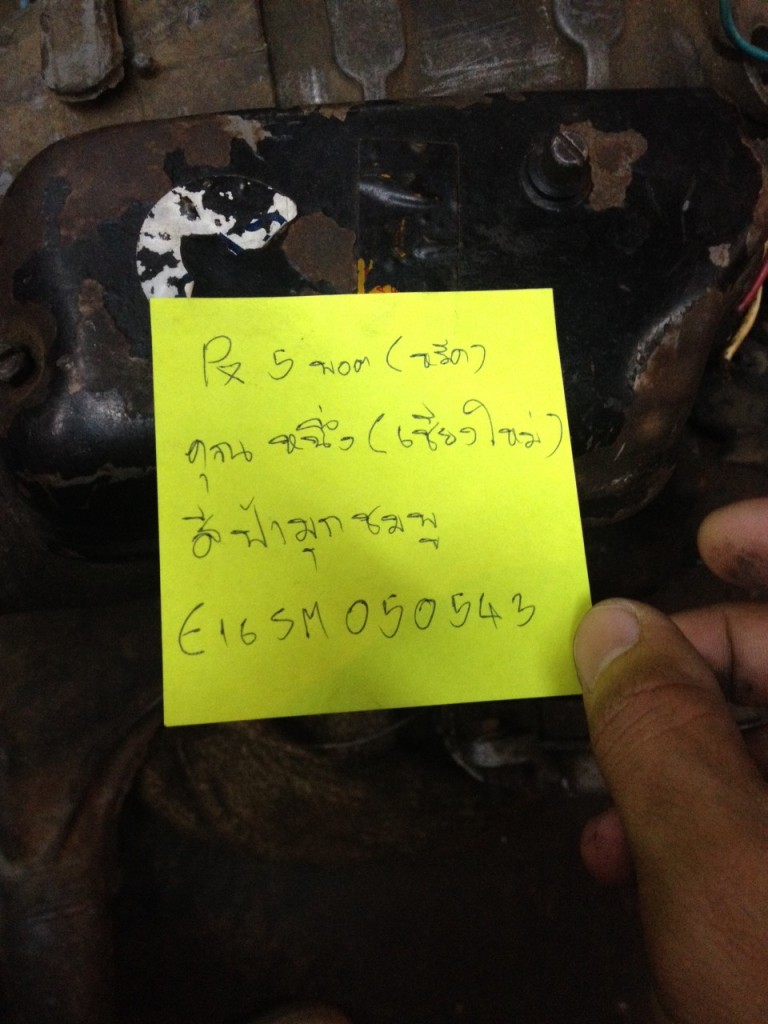 Px 5 พอต (หรีด)
คุณ หนึ่ง (เชียงใหม่)
สีฟ้ามุกชมพู
E16SM050543